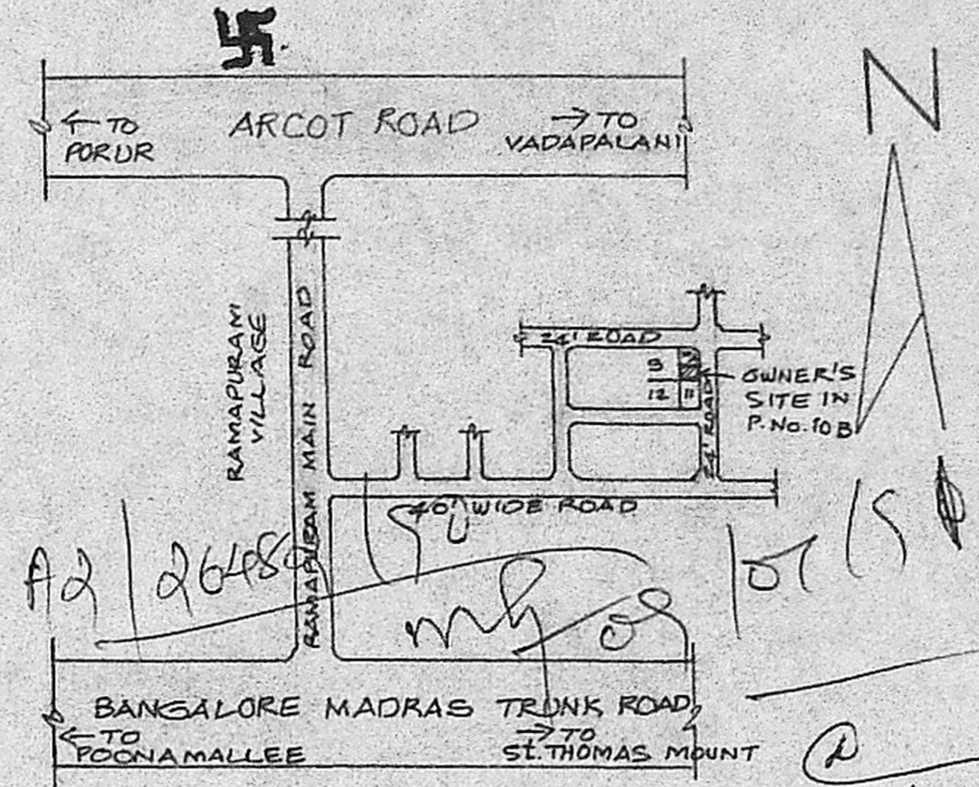 N
ARCOT ROAD
← TO
PORUR
→ TO
VADAPALANI
RAMAPURAM
VILLAGE
RAMAPURAM MAIN ROAD
24' ROAD
9
12
11
24' ROAD
OWNER'S
SITE IN
P. No. 10B
40' WIDE ROAD
A2
BANGALORE MADRAS TRUNK ROAD
← TO
POONAMALLEE
→ TO
St. THOMAS MOUNT